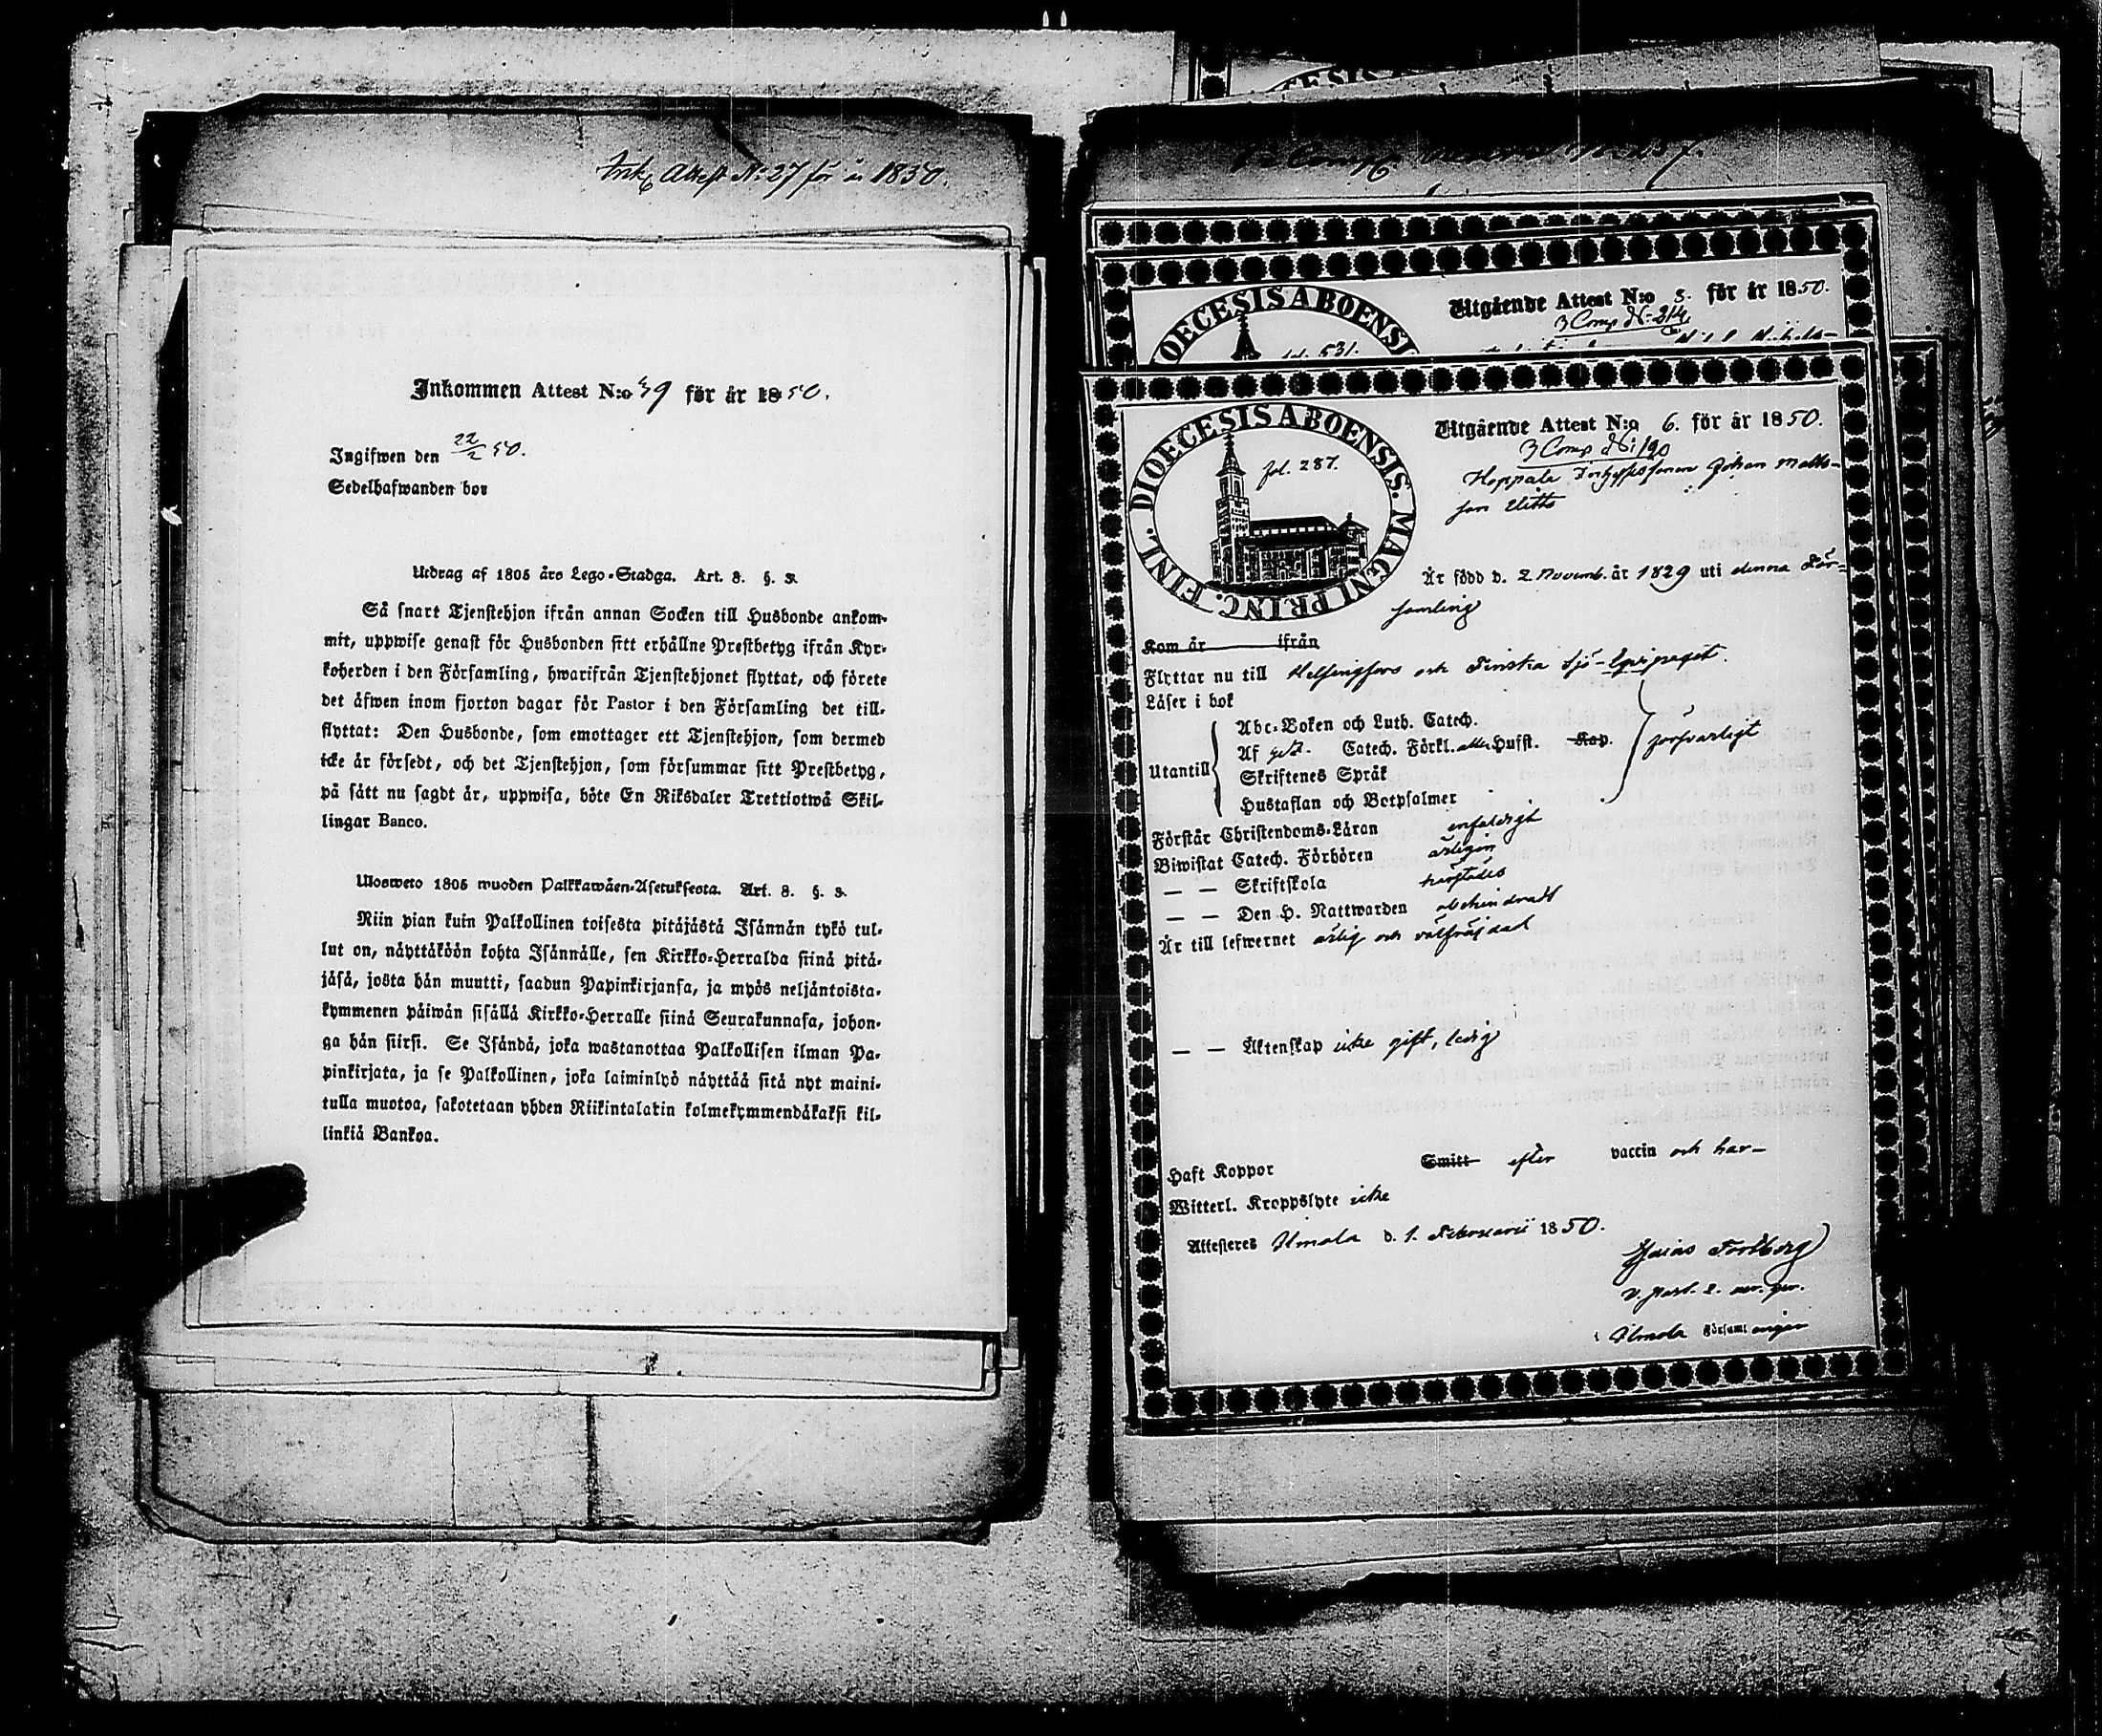 Inkg Attest N:27 för år 1850.
Inkommen Attest N:o 39 för år 1850.
Ingifwen den 22/2 50.
Sedelhafwanden bor
Utdrag af 1805 års Lego-Stadga. Art. 8. §. 3.
Så snart Tjenstehjon ifrån annan Socken till Husbonde ankom-
mit, uppwise genast för Husbonden sitt erhållne Prestbetyg ifrån Kyr-
koherden i den Församling, hwarifrån Tjenstehjonet flyttat, och förete
det äfwen inom fjorton dagar för Pastor i den Församling det till-
flyttat: Den Husbonde, som emottager ett Tjenstehjon, som dermed
icke är försedt, och det Tjenstehjon, som försummar sitt Prestbetyg,
på sätt nu sagdt är, uppwisa, böte En Riksdaler Trettiotwå Skil-
lingar Banco.
Ulosweto 1805 wuoden Palkkawäen-Asetuksesta. Art. 8. §. 3.
Niin pian kuin Palkollinen toisesta pitäjästä Isännän tykö tul-
lut on, näyttäköön kohta Isännälle, sen Kirkko-Herralda siinä pitä-
jäsä, josta hän muutti, saadun Papinkirjansa, ja myös neljäntoista-
kymmenen päiwän sisällä Kirkko-Herralle siinä Seurakunnasa, johon-
ga hän siirsi. Se Isändä, joka wastanottaa Palkollisen ilman Pa-
pinkirjata, ja se Palkollinen, joka laiminlyö näyttää sitä nyt maini-
tulla muotoa, sakotetaan yhden Riikintalarin kolmekymmendäkaksi kil-
linkiä Bankoa.
Utgående Attest N:o 5. för år 1850.
3 Comp N:214
DIOECESIS ABOENSI
fol. 531.
Utgående Attest N:o 6. för år 1850.
3 Comp N:190
DIOECESIS ABOENSIS. MAGNI PRINC. FINL.
fol. 287.
Johan Matts-
son
Är född d. 2 Novemb. år 1829 uti denna För-
samling
Kom år ifrån
Flyttar nu till Helsingfors och Finska Sjö-Equipaget.
Läser i bok
Utantill
Abc-Boken och Luth. Catech.
Af Catech. Förkl. alla Hufst. Kap. försvarligt
Skriftenes Språk
Hustaflan och Botpsalmer
Förstår Christendoms-Läran enfaldigt
Biwistat Catech. Förhören årligen
— — Skriftskola härstädes
— — Den H. Nattwarden obehindradt
Är till lefwernet ärlig och välfräjdad
— — Äktenskap icke gift, ledig
Haft Koppor Smitt efter vaccin och har—
Witterl. Kroppslyte icke
Attesteres Ilmola d. 1. Februarii 1850.
Esaias Forsberg
v. past.
i Ilmola Församlingen